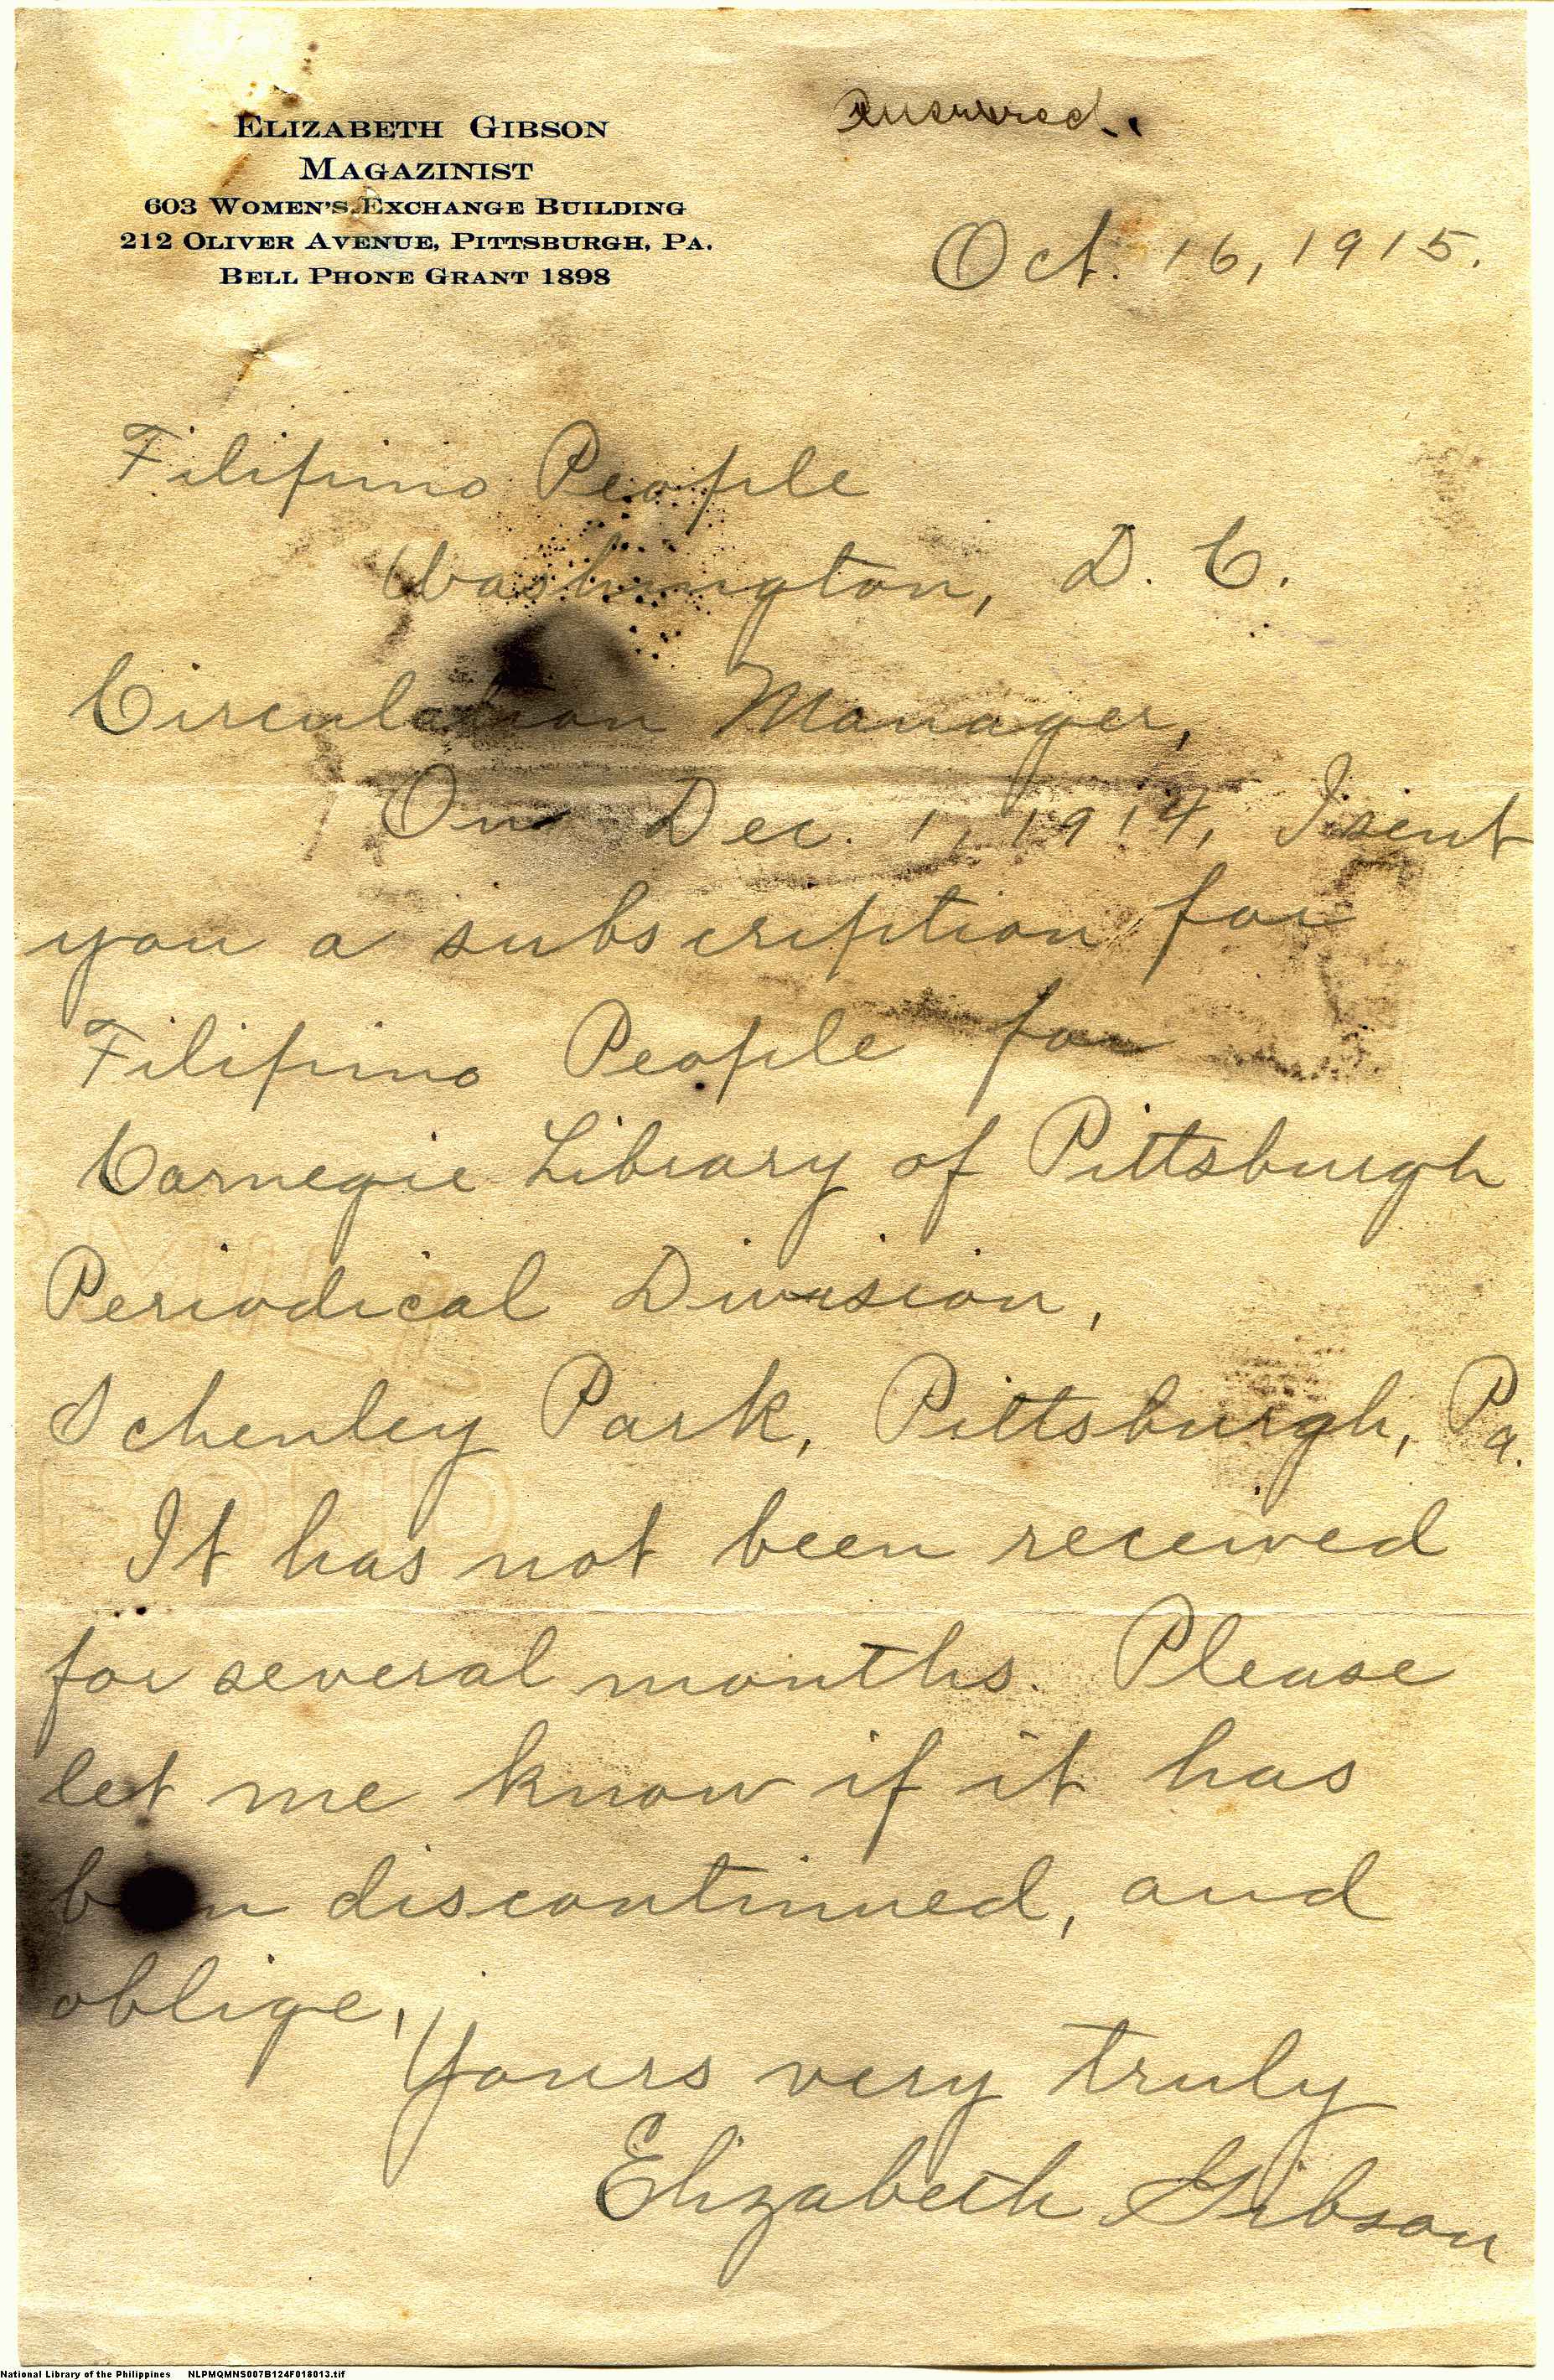 Elizabeth Gibson
Magazinist
603 Women's Exchange Building
212 Oliver Avenue, Pittsburgh, Pa.
Bell Phone Grant 1898
Answered.
Oct. 16, 1915.
Filipino People
Washington, D. C.
Circulation Manager,
On Dec. 1, 1914, I sent
you a subscription for
Filipino People for
Carnegie Library of Pittsburgh
Periodical Division,
Schenley Park, Pittsburgh, Pa.
It has not been received
for several months. Please
let me know if it has
been discontinued, and
oblige,
Yours very truly
Elizabeth Gibson
BOND
National Library of the Philippines NLPMQMNS007B124F018013.tif